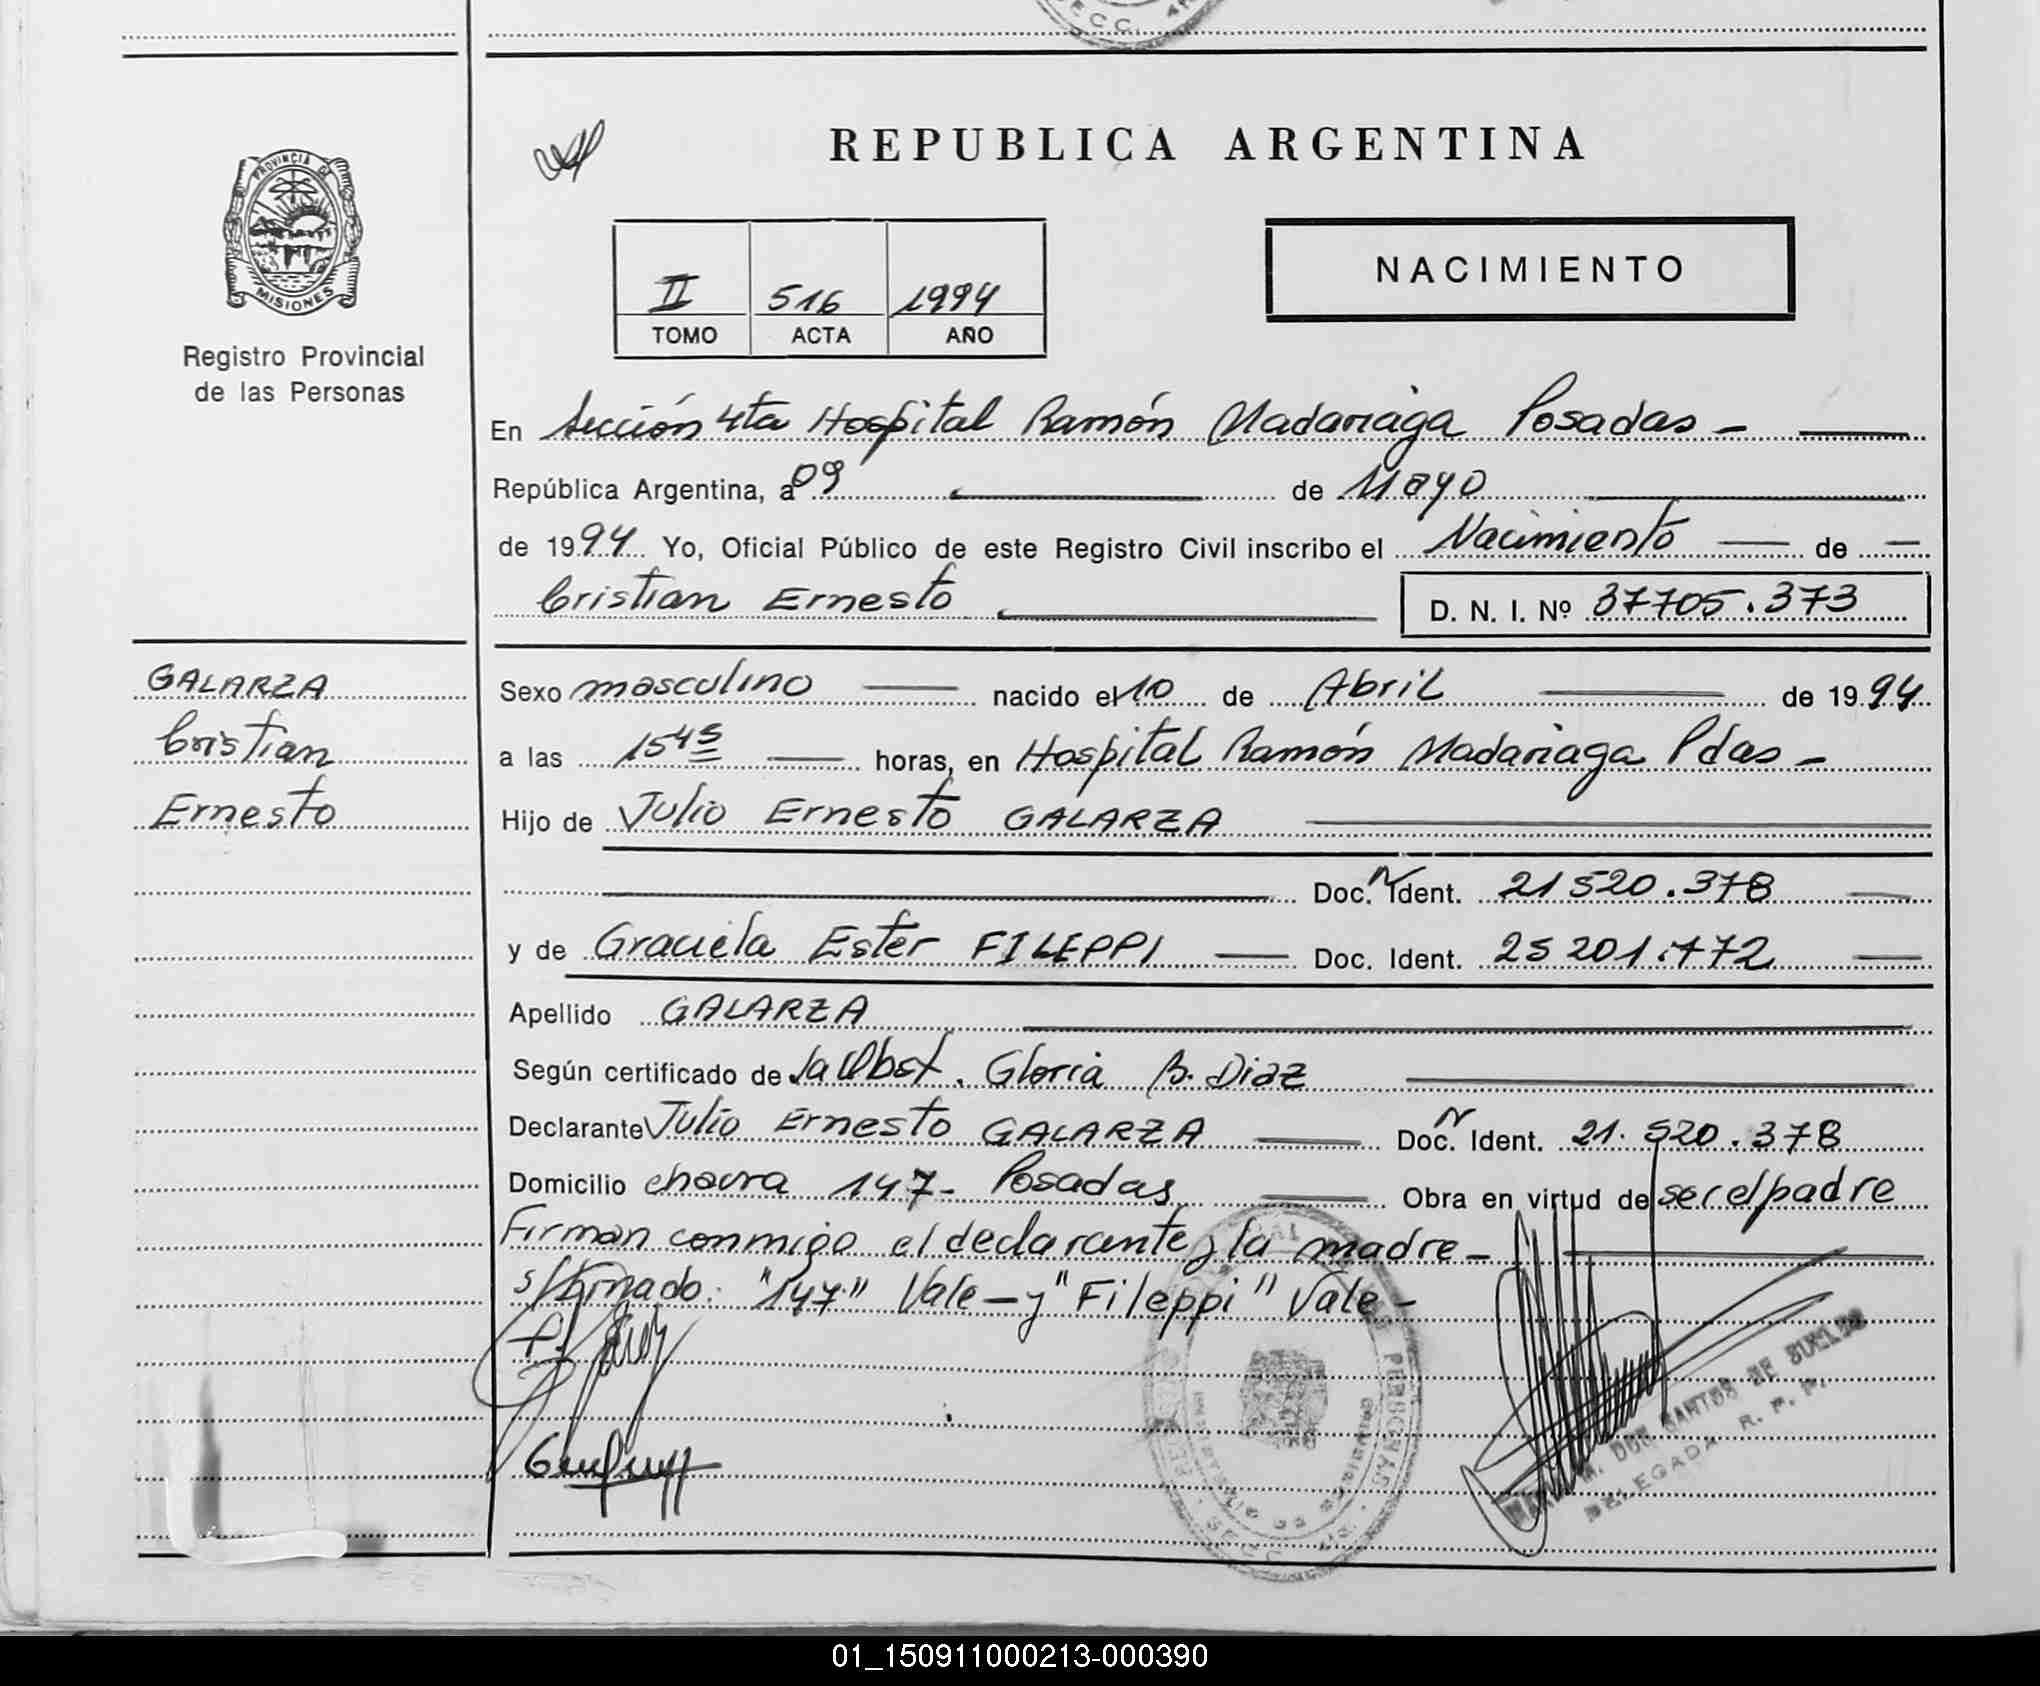 SECC. 4
REPUBLICA ARGENTINA
PROVINCIA DE
MISIONES
NACIMIENTO
II 516 1994
TOMO ACTA AÑO
Registro Provincial
de las Personas
En Sección 4ta Hospital Ramón Madariaga Posadas -
República Argentina, a 09 de Mayo
de 1994 Yo, Oficial Público de este Registro Civil inscribo el Nacimiento de
Cristian Ernesto D. N. I. Nº 37705.373
GALARZA
Cristian
Ernesto
Sexo masculino nacido el 10 de Abril de 1994
a las 1545 horas, en Hospital Ramón Madariaga Pdas -
Hijo de Julio Ernesto GALARZA
Doc. N Ident. 21520.378
y de Graciela Ester FILEPPI Doc. Ident. 25201.772
Apellido GALARZA
Según certificado de la Obst. Gloria B. Diaz
Declarante Julio Ernesto GALARZA Doc. N Ident. 21.520.378
Domicilio chacra 147- Posadas Obra en virtud de ser el padre
Firman conmigo el declarante y la madre -
s/bornado: "147" Vale - y "Fileppi" Vale -
DOS SANTOS DE
DELEGADA R. P. P.
01_150911000213-000390